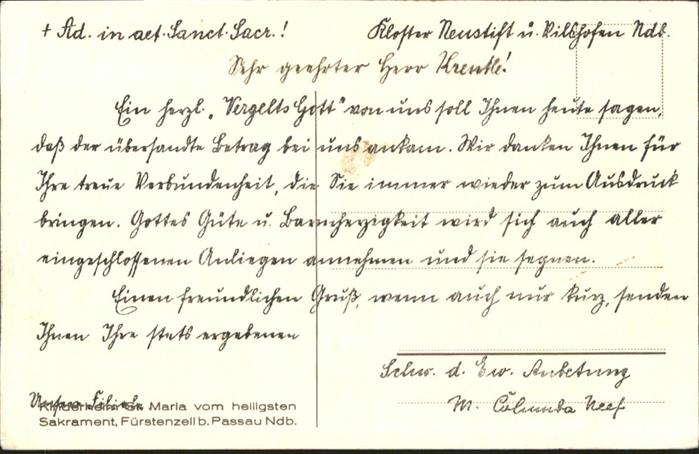 + Ad. in aet. Sanct. Sacr.! Kloster Neustift ü. Vilshofen Ndb.
Sehr geehrter Herr Krentle!
Ein herzl. „Vergelts Gott" von uns soll Ihnen heute sagen,
daß der übersandte Betrag bei uns ankam. Wir danken Ihnen für
Ihre treue Verbundenheit, die Sie immer wieder zum Ausdruck
bringen. Gottes Güte u. Barmherzigkeit wird sich auch aller
eingeschlossenen Anliegen annehmen und sie segnen.
Einen freundlichen Gruß, wenn auch nur kurz, senden
Ihnen Ihre stets ergebenen
Schw. d. Ew. Anbetung
M. Columba Neef
Unsere Filiale.
Kinderheim St. Maria vom heiligsten
Sakrament, Fürstenzell b. Passau Ndb.